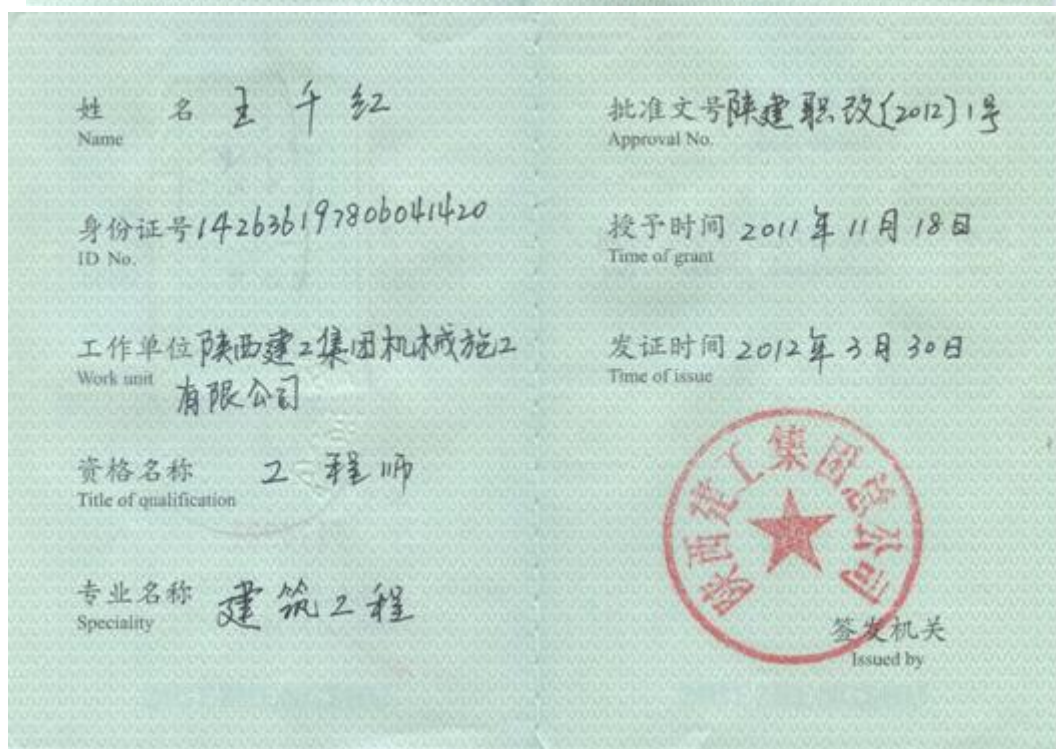 姓 名 王千红
Name
身份证号 142636197806041420
ID No.
工作单位 陕西建工集团机械施工
Work unit
有限公司
资格名称 工程师
Title of qualification
专业名称 建筑工程
Speciality
批准文号 陕建职改(2012)1号
Approval No.
授予时间 2011年11月18日
Time of grant
发证时间 2012年3月30日
Time of issue
陕西建工集团总公司
签发机关
Issued by